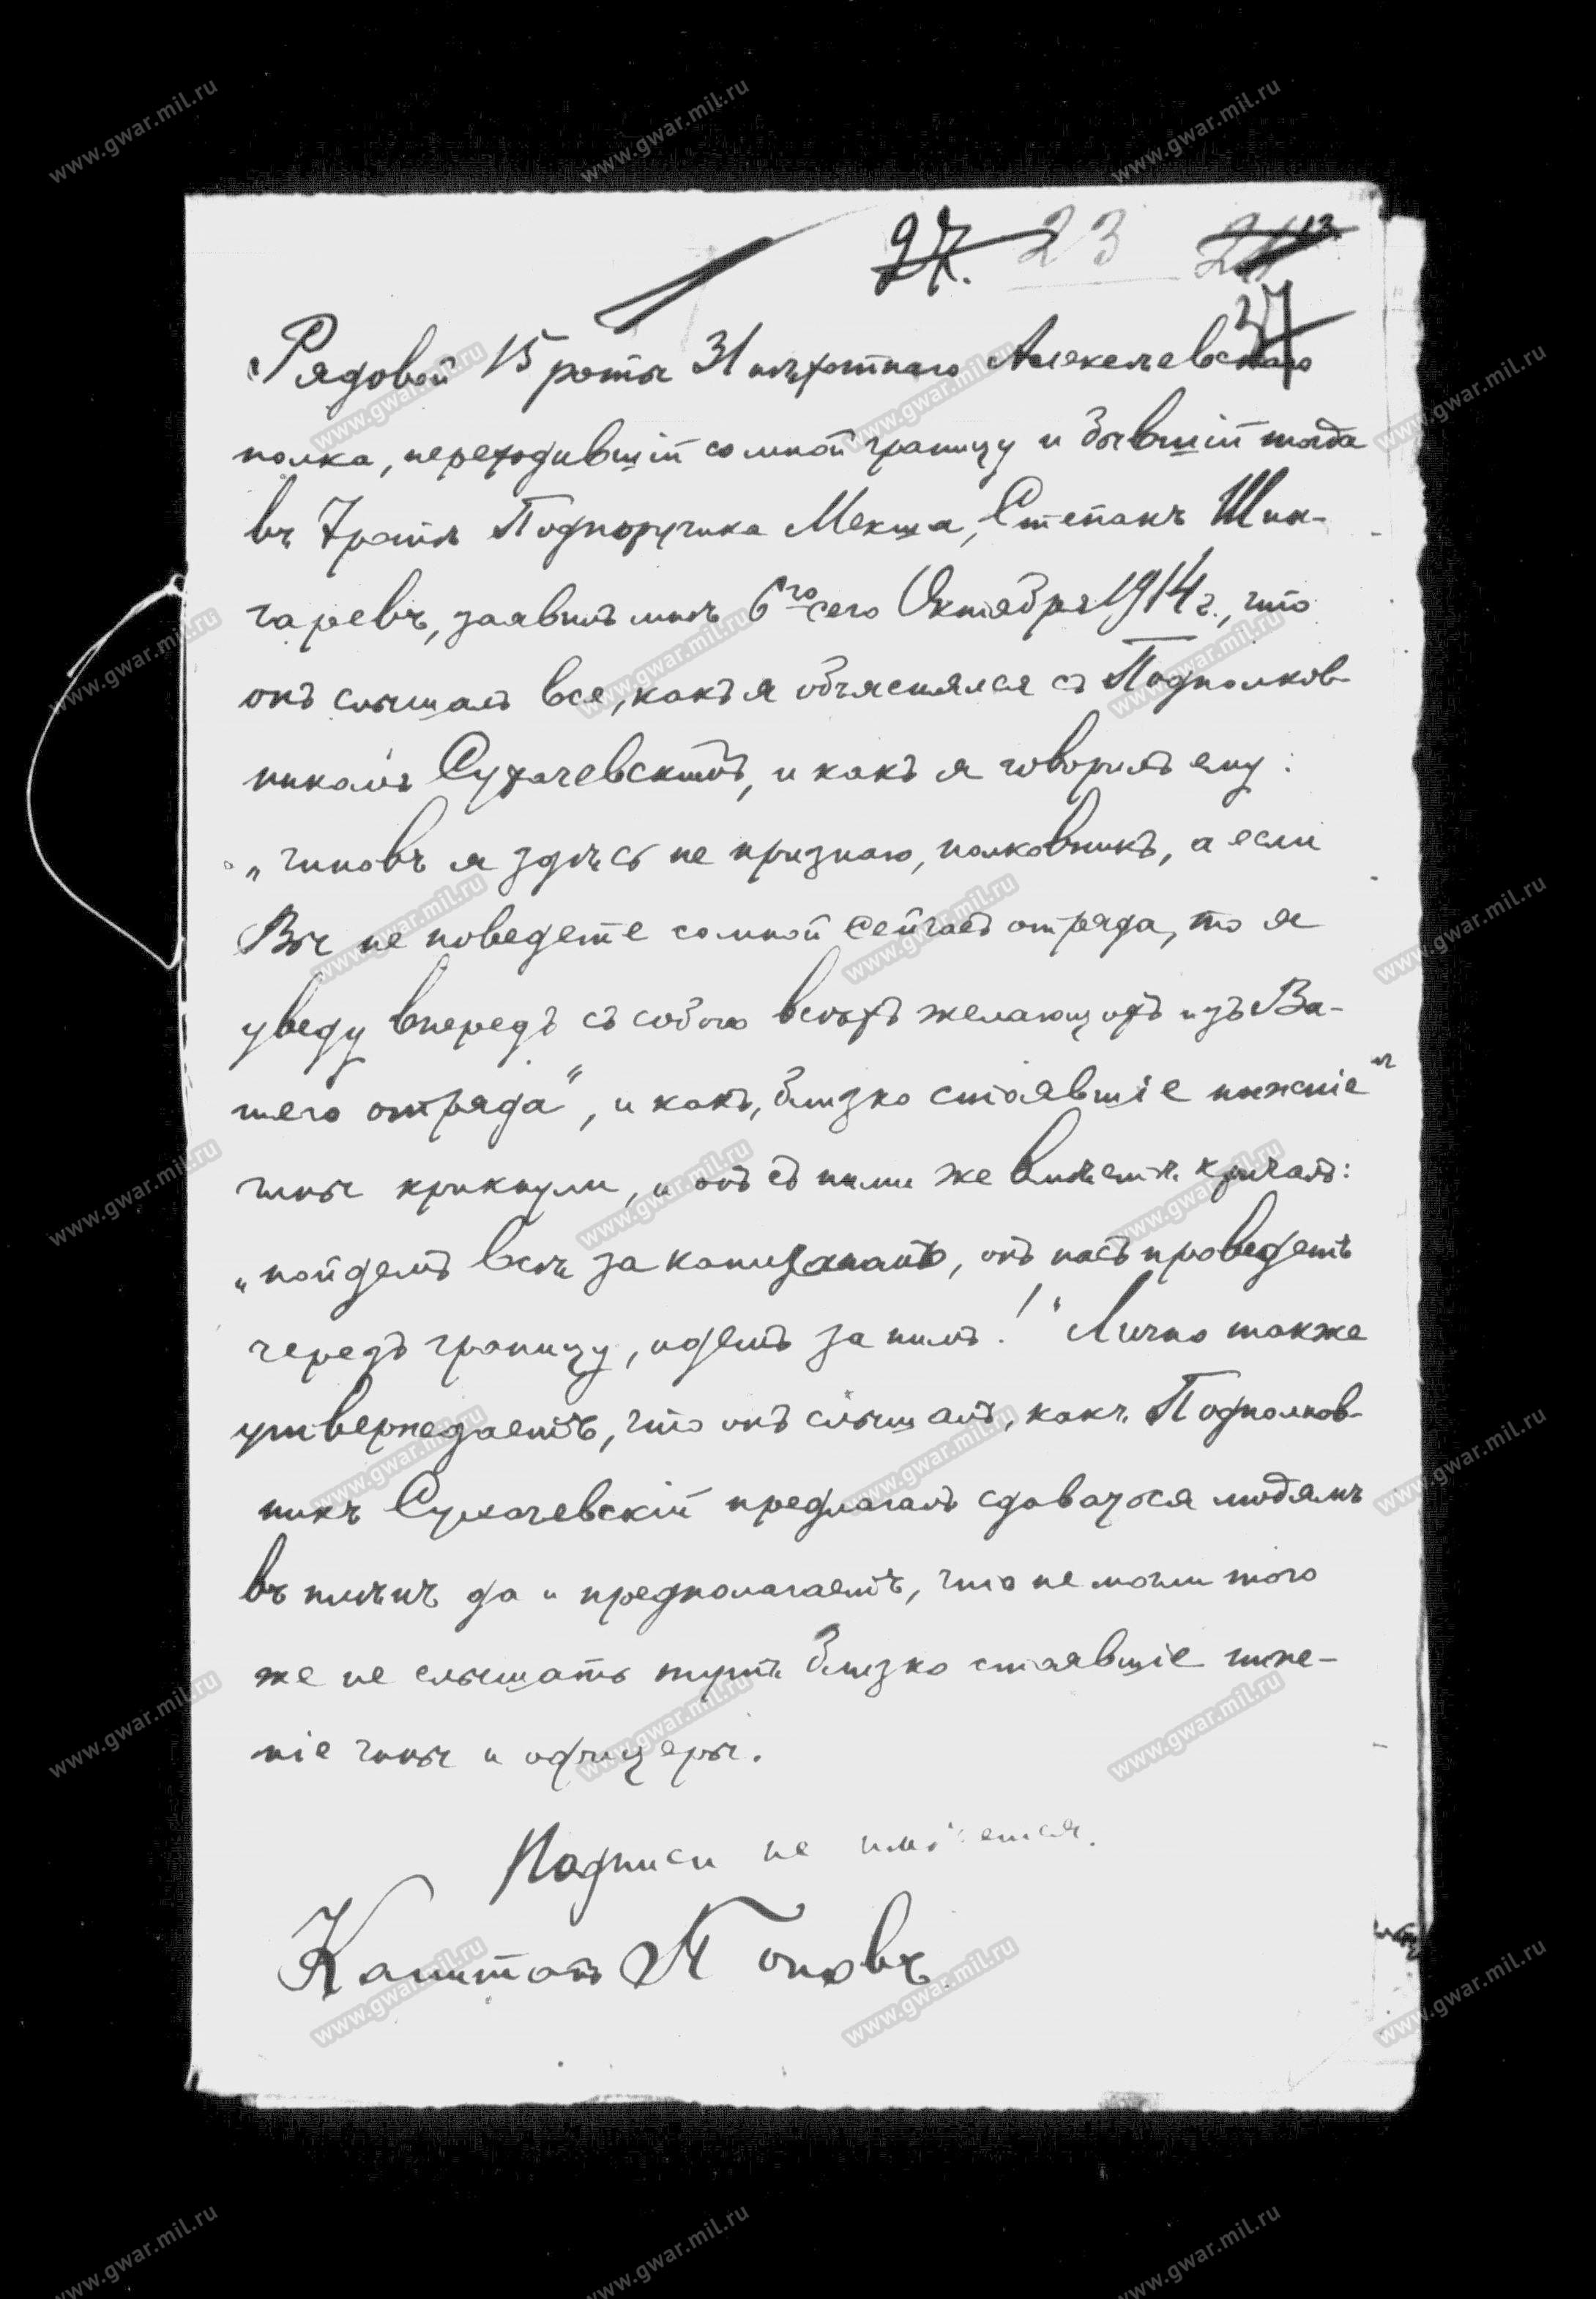 27. 23 24 12.
37
Рядовой 15 роты 31 пѣхотнаго Алексѣевскаго
полка, переходившій со мной границу и бывшій тогда
въ 7 ротѣ Подпоручика Мекша, Степанъ Шин-
гаревъ, заявилъ мнѣ 6го сего Октября 1914 г., что
онъ слышалъ все, какъ я объяснялся съ Подполков-
никомъ Сухачевскимъ, и какъ я говорилъ ему:
„чиновъ я здѣсь не признаю, полковникъ, а если
Вы не поведете со мной сейчасъ отряда, то я
уведу впередъ съ собою всѣхъ желающихъ изъ Ва-
шего отряда“, и какъ, близко стоявшіе нижніе
чины крикнули, и онъ съ ними же вмѣстѣ кричалъ:
„пойдемъ всѣ за капитаномъ, онъ насъ проведетъ
черезъ границу, идемъ за нимъ!“ Лично также
утверждаетъ, что онъ слышалъ, какъ Подполков-
никъ Сухачевскій предлагалъ сдаваться людямъ
въ плѣнъ да и предполагаетъ, что не могли того
же не слышать тутъ близко стоявшіе ниж-
ніе чины и офицеры.
Подписи не имѣется.
Капитанъ Поповъ